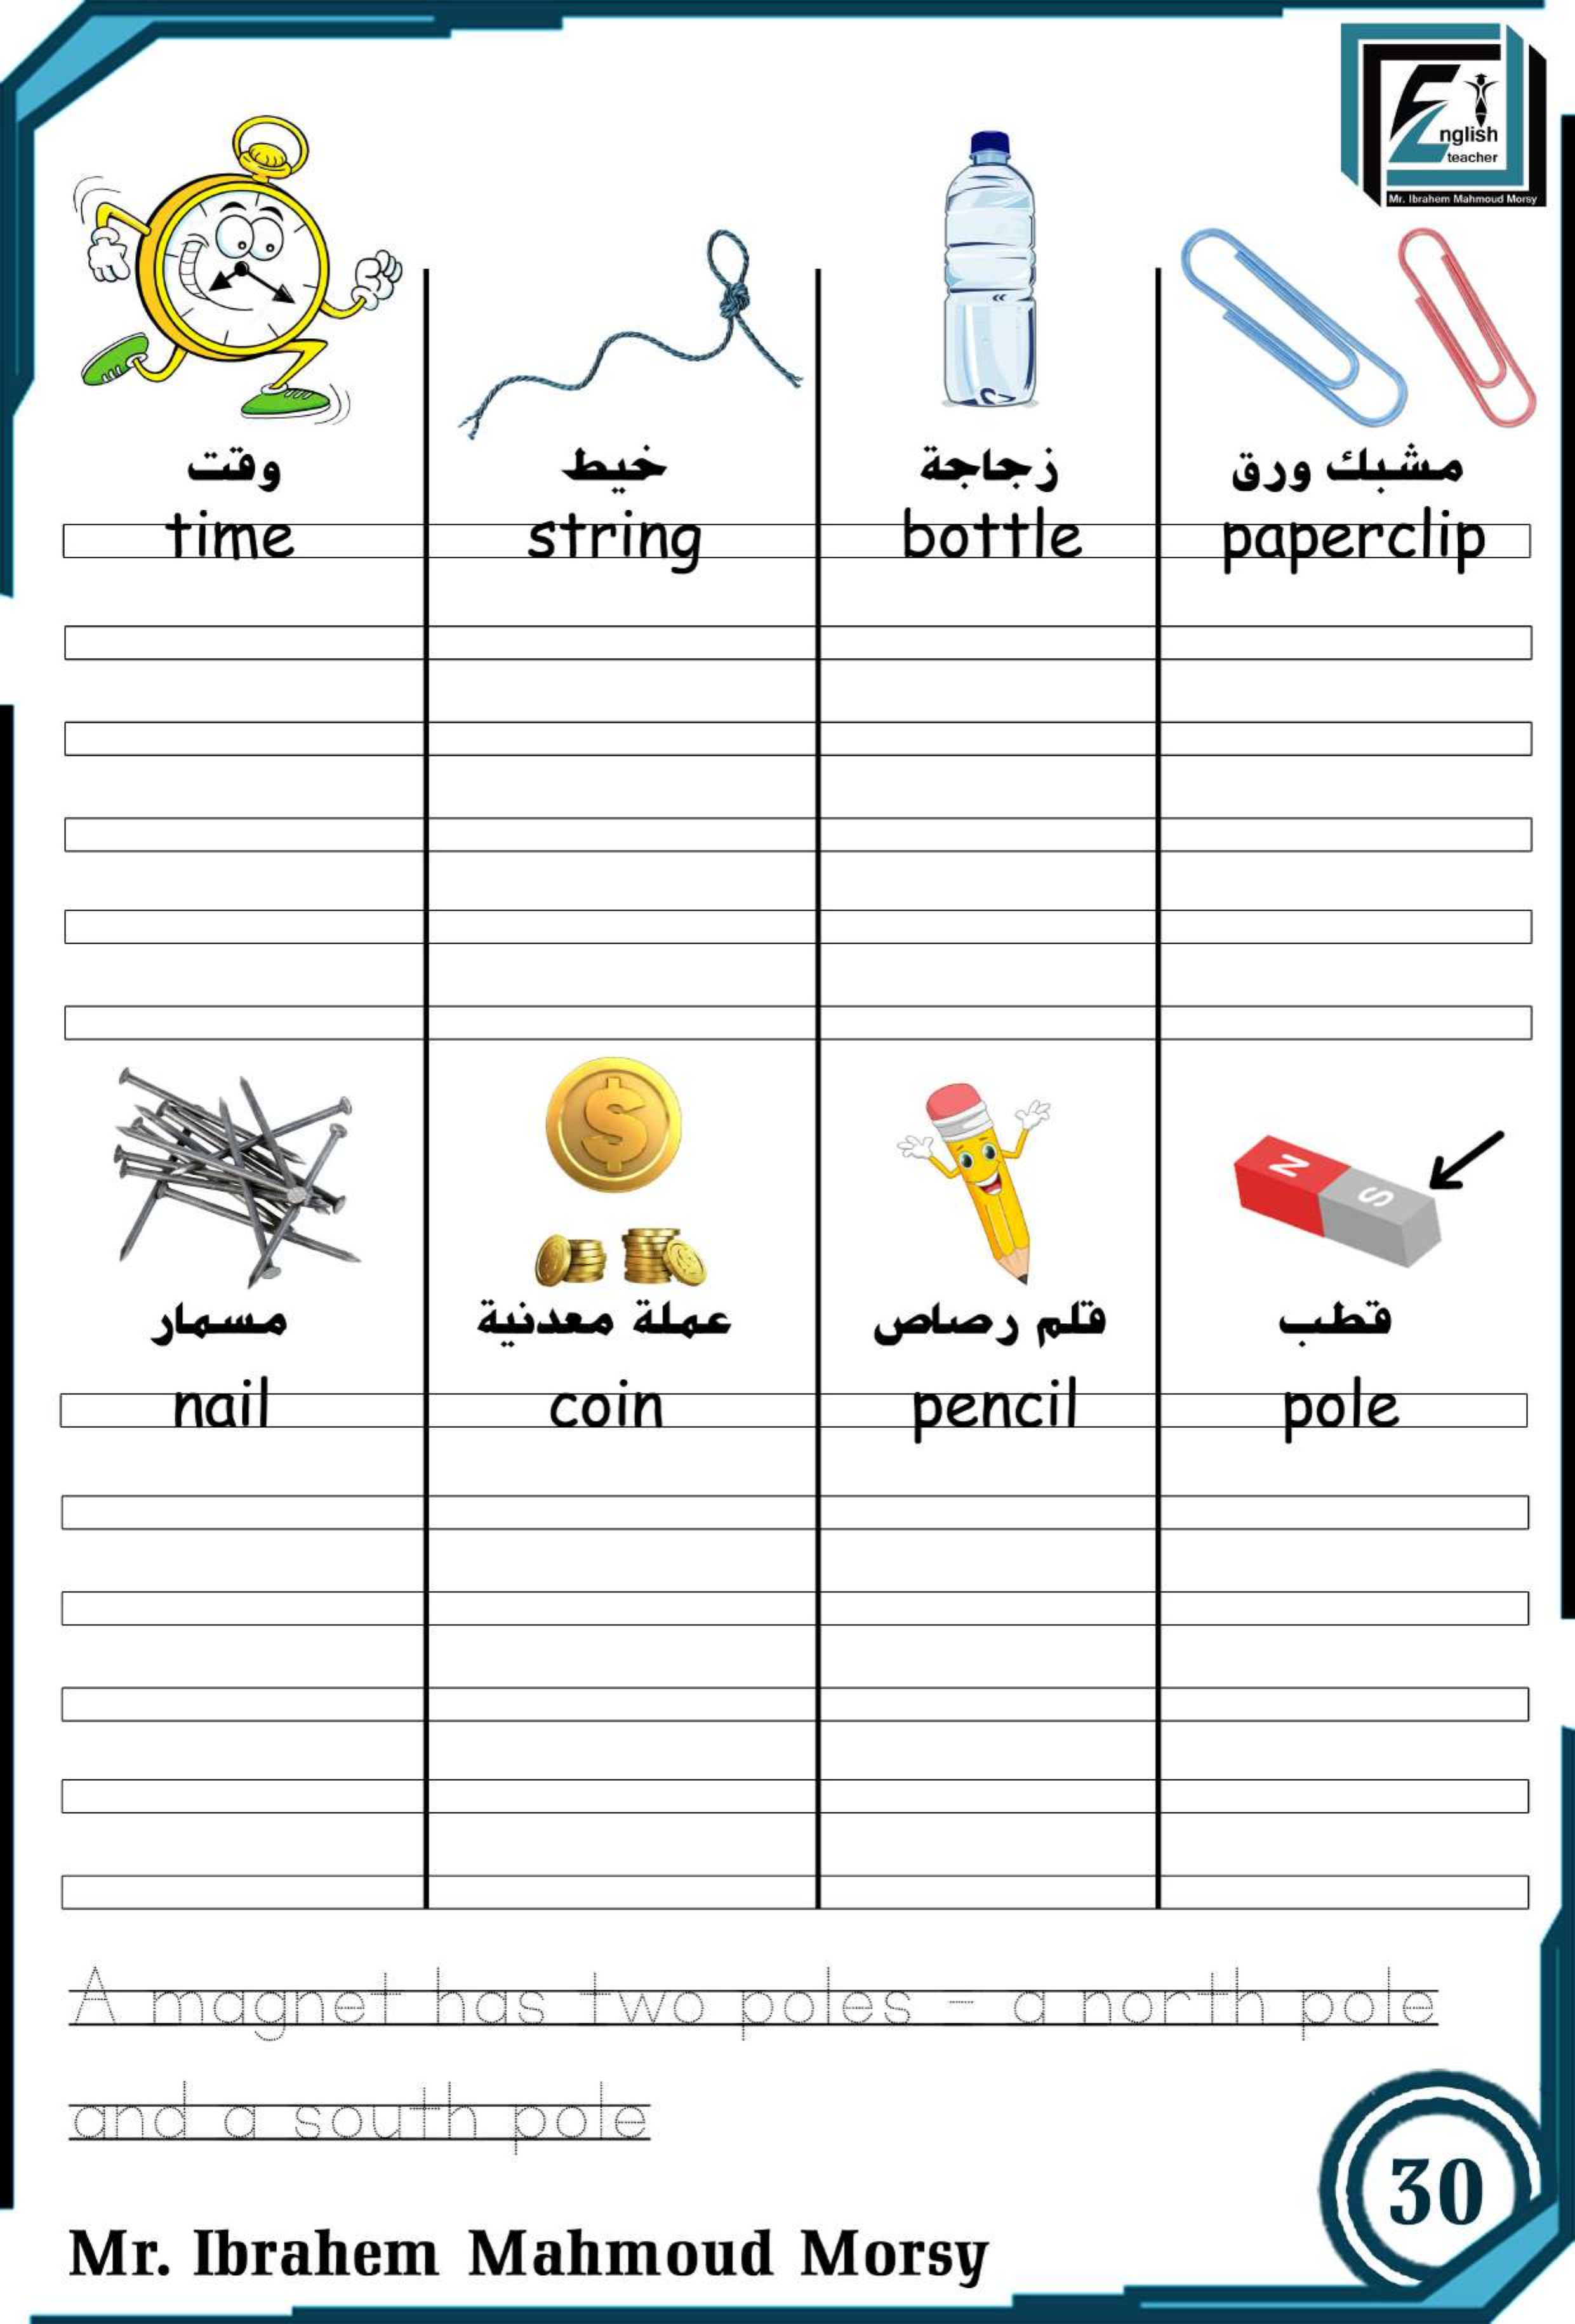 English
teacher
Mr. Ibrahem Mahmoud Morsy
وقت خيط زجاجة مشبك ورق
time string bottle paperclip
$
N S
مسمار عملة معدنية قلم رصاص قطب
nail coin pencil pole
A magnet has two poles - a north pole
and a south pole
30
Mr. Ibrahem Mahmoud Morsy